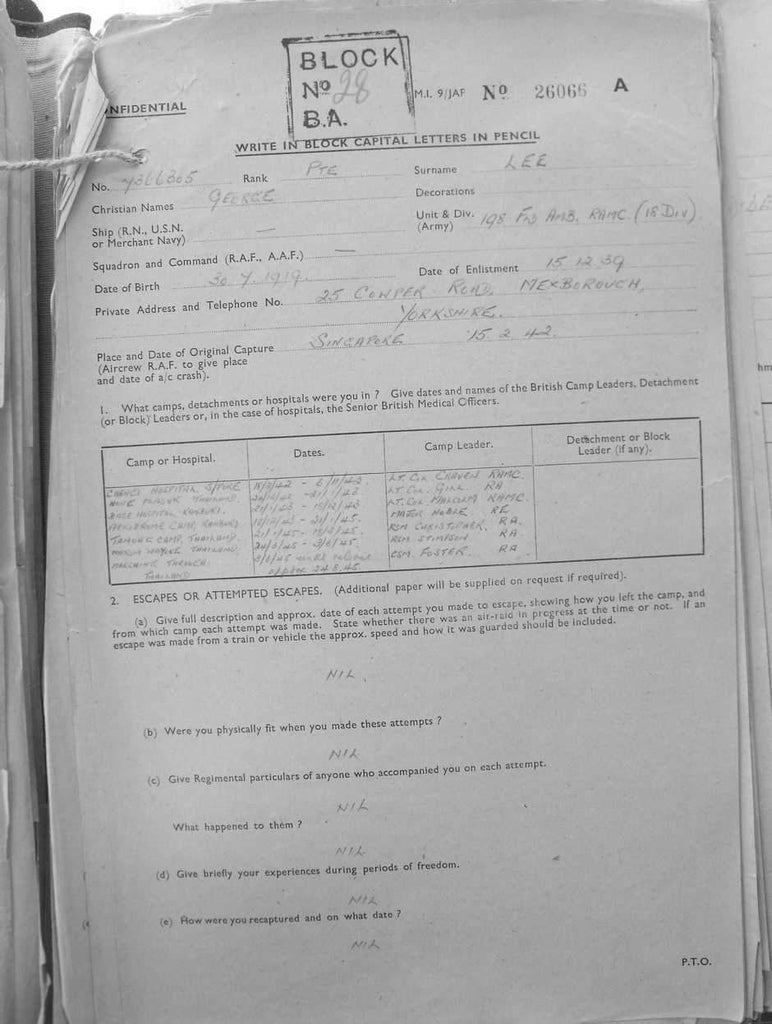 BLOCK
Nº 28
B.A.
NFIDENTIAL
M.I. 9/JAP Nº 26066 A
WRITE IN BLOCK CAPITAL LETTERS IN PENCIL
No. Rank PTE Surname LEE
Christian Names GEORGE Decorations
Ship (R.N., U.S.N. or Merchant Navy) — Unit & Div. (Army) 198 FLD AMB. RAMC (18 DIV)
Squadron and Command (R.A.F., A.A.F.) —
Date of Birth 30 7 1919 Date of Enlistment 15 12 39
Private Address and Telephone No. 25 COWPER ROAD, MEXBOROUGH,
YORKSHIRE.
Place and Date of Original Capture SINGAPORE 15 2 42
(Aircrew R.A.F. to give place
and date of a/c crash).
1. What camps, detachments or hospitals were you in ? Give dates and names of the British Camp Leaders, Detachment
(or Block) Leaders or, in the case of hospitals, the Senior British Medical Officers.
Camp or Hospital. Dates. Camp Leader. Detachment or Block Leader (if any).
CHANGI HOSPITAL S/PORE LT. COL CRAVEN RAMC
THAILAND. LT. COL. RA
BASE HOSPITAL LT. COL MALCOLM RAMC
AERODROME CAMP, MAJOR NOBLE RE
TAMUNG CAMP, THAILAND. RSM CHRISTOPHER, RA
THAILAND RSM STIMPSON RA
MARCHING THROUGH CSM FOSTER RA
THAILAND
2. ESCAPES OR ATTEMPTED ESCAPES. (Additional paper will be supplied on request if required).
(a) Give full description and approx. date of each attempt you made to escape, showing how you left the camp, and
from which camp each attempt was made. State whether there was an air-raid in progress at the time or not. If an
escape was made from a train or vehicle the approx. speed and how it was guarded should be included.
NIL.
(b) Were you physically fit when you made these attempts ?
NIL
(c) Give Regimental particulars of anyone who accompanied you on each attempt.
NIL
What happened to them ?
NIL
(d) Give briefly your experiences during periods of freedom.
NIL
(e) How were you recaptured and on what date ?
NIL
P.T.O.